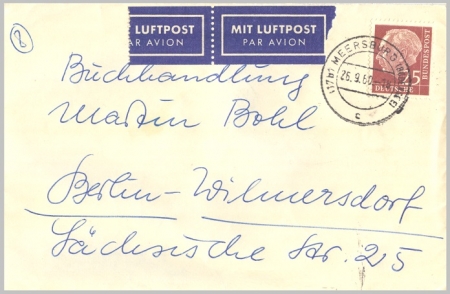 8
MIT LUFTPOST
PAR AVION
MIT LUFTPOST
PAR AVION
MEERSBURG
26.9.60
c
25
DEUTSCHE BUNDESPOST
Buchhandlung
Martin Bohl
Berlin-Wilmersdorf
Sächsische Str. 25